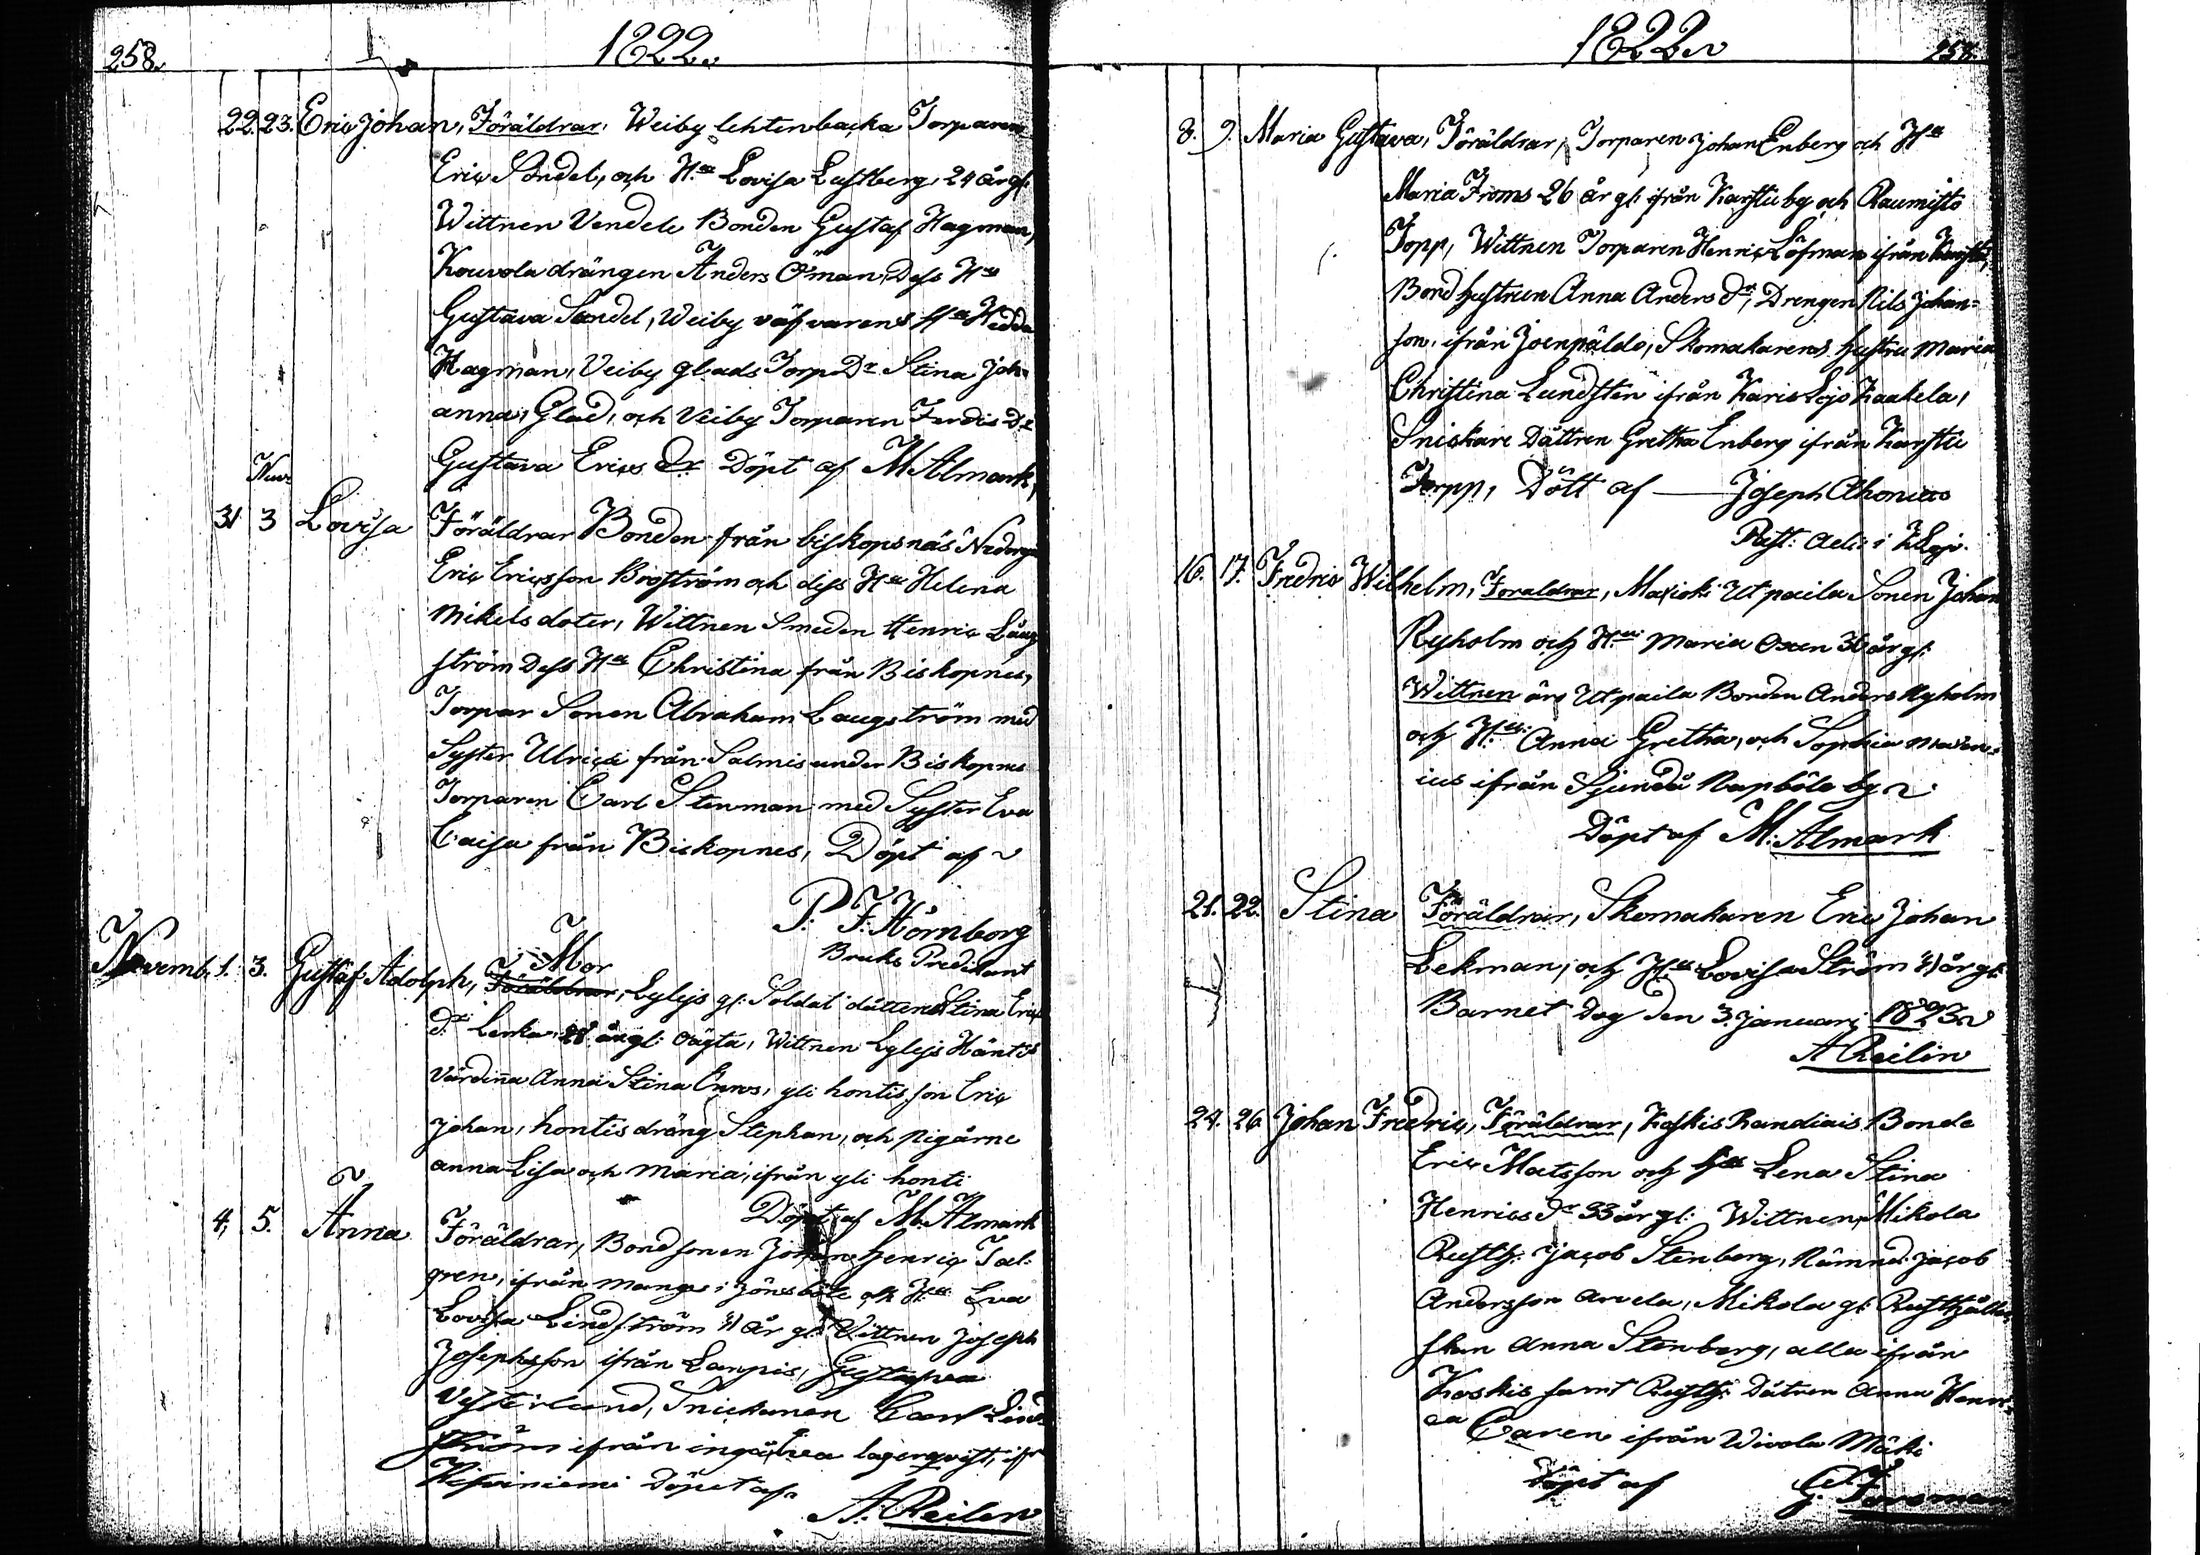 258.
1822.
22. 23. Eric Johan, Föräldrar, Weiby lehtenbacka Torparen
Eric Sondel, och H:u Lovisa Lustberg, 24 år gl:
Wittnen Vendele Bonden Gustaf Hagman,
Kouvola drängen Anders Öman, Dess H:u
Gustava Sondel, Weiby väfvarens H:u Hedda
Hagman, Veiby glads Torp Dr Stina Joh-
anna, Glad, och Veiby Torparen Ferdis Dr
Gustava Erics Dr Döpt af M Almark,
Nov:
31 3 Lovisa Föräldrar Bonden från biskopsnäs
Eric Ericsson Boström och diss H:u Helena
Mikels doter, Wittnen Smeden Henric Laug
ström Dess H:u Christina från Biskopnes,
Torpar Sonen Abraham Laugström med
Syster Ulrica från Salmis under Biskopnes
Torparen Carl Stenman med Syster Eva
Caisa från Biskopnes, Döpt af
P. F. Hörnborg
Bruks Predikant
Mor
Novemb. 1. 3. Gustaf Adolph, Föräldrar, Lylyis gl: Soldat dåttern Stina Erics
dr Lenka, 28 år gl: oägta, Wittnen Lylyis Häntis
värdinna Anna Stina Enros, yli hontis son Eric
Johan, hontis dräng Stephan, och pigårne
anna Lisa och Maria, ifrån yli honti
Döpt af M. Almark
4, 5. Anna Föräldrar, Bondsonen Johan Henric Tal-
gren, ifrån Manga i Jönsböle och H:u Eva
Lovisa Lindström år gl: Vittnen Joseph
Josephsson ifrån Lanpis, Gustava
Vesterlund, Snickaren Carl Lind
ström ifrån lagerqvist, ifr
Döpt af
A. Reilin
1822
258.
8. 9. Maria Gustava, Föräldrar, Torparen Johan Enberg och H:u
Maria Froms 26 år gl: ifrån Karstu by och Raumisto
Torpp, Wittnen Torparen Henric Löfman ifrån Karstu,
Bond hustrun Anna Anders dr, Drengen Nils Johan-
son, ifrån Joenpäldo, Skomakarens hustru Maria
Christina Lundsten ifrån Karis Lojo Kaakela,
Sniskare Dåttren Gretha Enberg ifrån Karstu
Torpp, Dött af — Joseph Ahonius
Past: Adj: i KLojo.
16. 17. Fredric Wilhelm, Föräldrar, Maxjoki Utpaila Sonen Johan
Ryholm och H:u Maria Oxen 30 år gl:
Wittnen äro Utpaila Bonden Anders Nyholm
och H:u: Anna Gretha, och Sophia
ius ifrån Sjundå Napböle by
Döpt af M: Almark
21. 22. Stina Föräldrar, Skomakaren Eric Johan
Lekman, och H:u Lovisa Ström 41 år gl:
Barnet Dog den 3. Januari 1823
A Reilin
24. 26. Johan Fredric, Föräldrar, Koskis Randiais Bonde
Eric Matsson och H:u Lena Stina
Henrics dr 33 år gl: Wittnen, Mikola
Rusth: Jacob Stenberg, Nämnd: Jacob
Andersson Arvela, Mikola gl: Rusthålla-
skan Anna Stenberg, alla ifrån
Koskis samt Rusth: Dåtren Anna Henri-
ca Caren ifrån Wivola Mäki
Döpt af G. Forsman